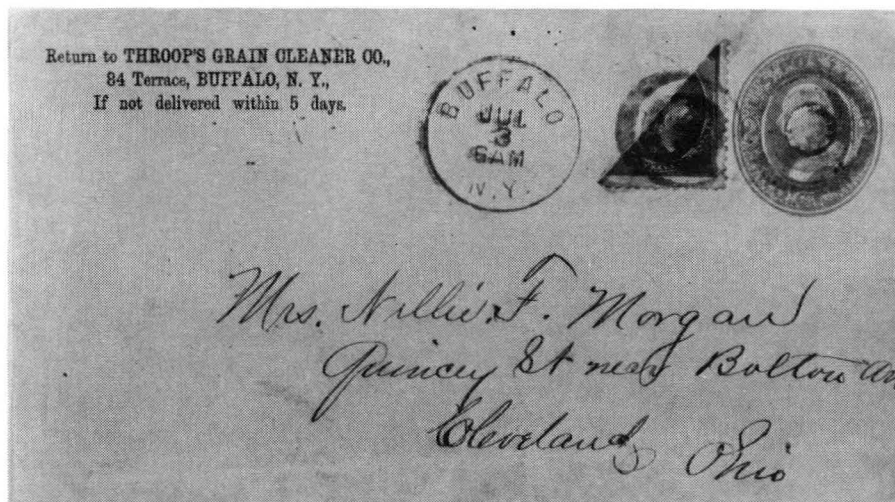 Return to THROOP'S GRAIN CLEANER CO.,
84 Terrace, BUFFALO, N. Y.,
If not delivered within 5 days.
BUFFALO
JUL
3
6AM
N.Y.
Mrs. Nellie F. Morgan
Quincey St near Bolton Av
Cleveland,
Ohio